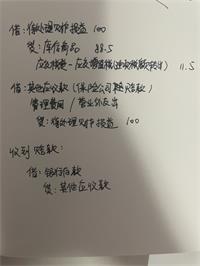 借：待处理财产损益 100
贷：库存商品 88.5
应交税费—应交增值税(进项税额转出) 11.5
借：其他应收款（保险公司赔款）
管理费用/营业外支出
贷：待处理财产损益 100
收到赔款：
借：银行存款
贷：其他应收款